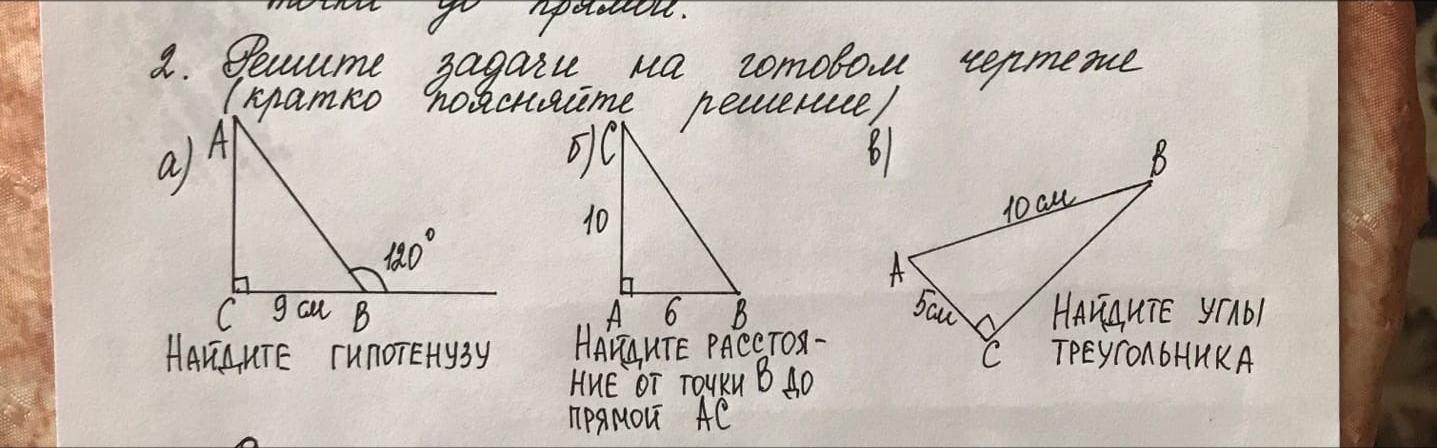 точки до прямой.
2. Решите задачи на готовом чертеже
(кратко поясняйте решение)
а) A 120° C 9 см B
НАЙДИТЕ ГИПОТЕНУЗУ
б) C 10 A 6 B
НАЙДИТЕ РАССТОЯ-
НИЕ ОТ ТОЧКИ В ДО
ПРЯМОЙ АС
в) B 10 см A 5см C
НАЙДИТЕ УГЛЫ
ТРЕУГОЛЬНИКА